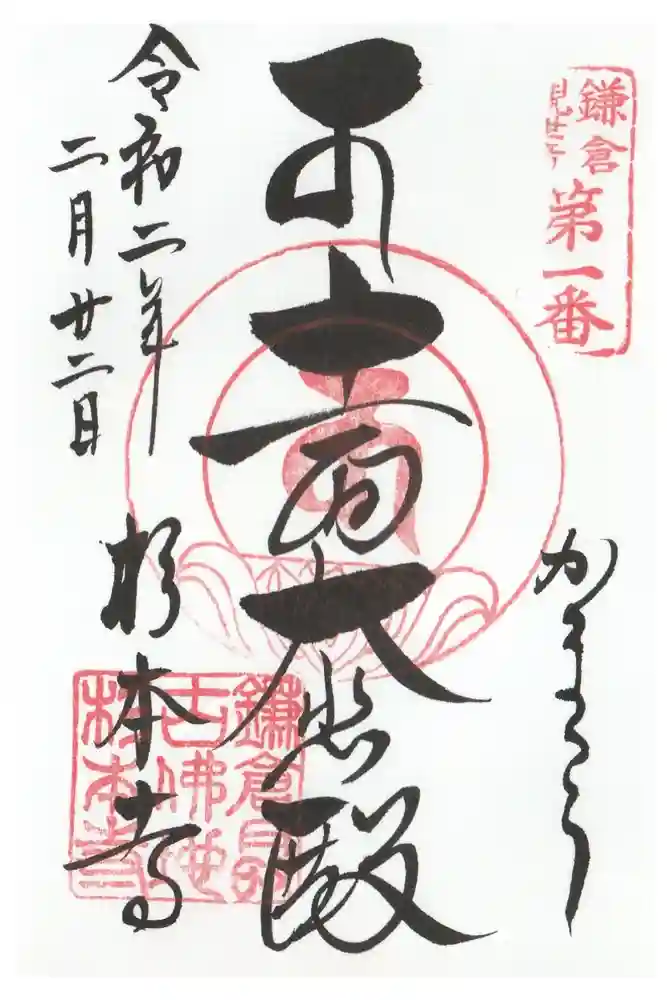 鎌倉
観世音
第一番
かまくら
十一面大悲殿
令和二年
二月廿二日
杉本寺
鎌倉最初
古佛地
杉本寺